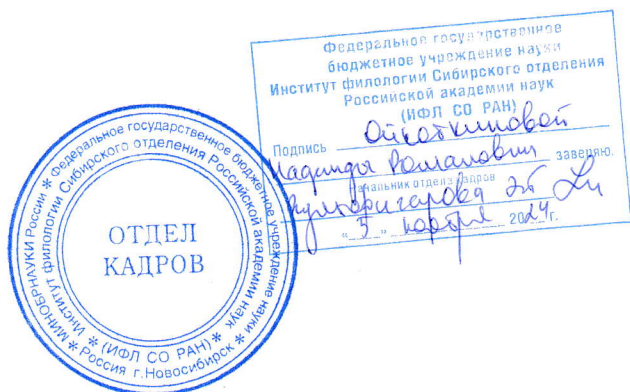 Федеральное государственное
бюджетное учреждение науки
Институт филологии Сибирского отделения
Российской академии наук
(ИФЛ СО РАН)
Подпись Ойноткиновой
Надежды Романовны заверяю.
Начальник отдела кадров
"5" ноября 2024г.
МИНОБРНАУКИ России * Федеральное государственное бюджетное учреждение науки
Институт филологии Сибирского отделения Российской академии наук
* (ИФЛ СО РАН) *
* Россия г.Новосибирск *
ОТДЕЛ
КАДРОВ